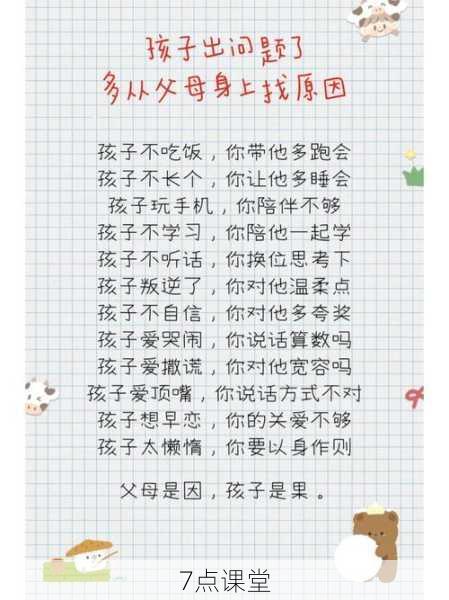 孩子出问题了
多从父母身上找原因
孩子不吃饭，你带他多跑会
孩子不长个，你让他多睡会
孩子玩手机，你陪伴不够
孩子不学习，你陪他一起学
孩子不听话，你换位思考下
孩子叛逆了，你对他温柔点
孩子不自信，你对他多夸奖
孩子爱哭闹，你说话算数吗
孩子爱撒谎，你对他宽容吗
孩子爱顶嘴，你说话方式不对
孩子想早恋，你的关爱不够
孩子太懒惰，你要以身作则
父母是因，孩子是果。
7点课堂